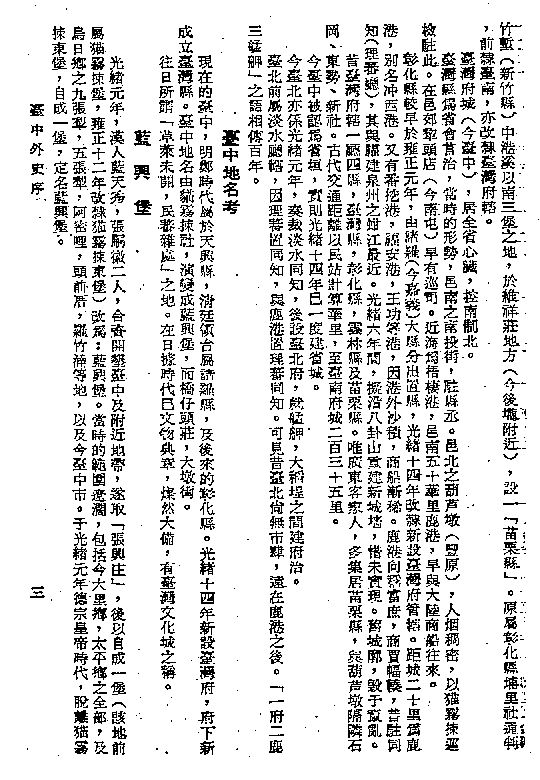 竹塹(新竹縣)中港溪以南三堡之地,於維祥莊地方(今後壠附近),設一「苗栗縣」。原屬彰化縣埔里社通判
,前隸臺南,亦改隸臺灣府轄。
臺灣府城(今臺中),居全省心臟,控南制北。
臺灣縣爲省會首治,當時的形勢,邑南之南投街,駐縣丞。邑北之葫芦墩(豐原),人烟稠密,以猫霧揀巡
檢駐此。在邑郊犂頭店(今南屯)早有巡司。近海爲梧棲港,邑南五十華里鹿港,早與大陸商船往來。
彰化縣較早於雍正元年,由諸羅(今嘉義)大縣分出置縣,光緒十四年改隸新設臺灣府省轄。距城二十里爲鹿
港,別名冲西港。又有番挖港,福安港,王功等港,因港外沙積,商船漸稀。鹿港向爲富庶,商賈幅輳,昔駐同
知(理番廳),其與福建泉州之蚶江最近。光緒六年間,擬沿八卦山重建新城垣,惜未實現。舊城廓,毀于戴亂。
昔臺灣府轄一廳四縣,臺灣縣,彰化縣,雲林縣及苗栗縣。唯廣東客家人,多集居苗栗縣,與葫芦墩隔隣石
岡、東勢、新社。古代交通距離以民站計算華里,至臺南府城二百三十五里。
今臺中被認爲省垣,實則光緒十四年已一度建省城。
今臺北亦係光緒元年,奏裁淡水同知,後設臺北府,就艋舺,大稻埕之間建府治。
臺北前屬淡水廳轄,因理蕃置同知,與鹿港置理蕃同知。可見昔臺北尚無市肆,遠在鹿港之後。「一府二鹿
三艋舺」之語相傳百年。
臺中地名考
現在的臺中,明鄭時代屬於天興縣,清廷領台屬諸羅縣,及後來的彰化縣。光緒十四年新設臺灣府,府下新
成立臺灣縣。臺中地名由貓霧揀社,演變成藍興堡,而橋仔頭莊,大墩街。
往日所謂「草萊未開,民蕃雜處」之地。在日據時代已文物典章,燦然大備,有臺灣文化城之稱。
藍興堡
光緒元年,漢人藍天秀,張嗣徽二人,合資開墾臺中及附近地帶,遂取「張興庄」,後以自成一堡(該地前
屬猫霧揀堡,雍正十二年改隸猫霧揀東堡)改爲:藍興堡。當時的範圍遼濶,包括今大里鄉,太平鄉之全部,及
烏日鄉之九張犂,五張犂,阿密哩,頭前厝,蘿竹湳等地,以及今臺中市。于光緒元年德宗皇帝時代,脫離猫霧
揀東堡,自成一堡,定名藍興堡。
臺中外史序
三